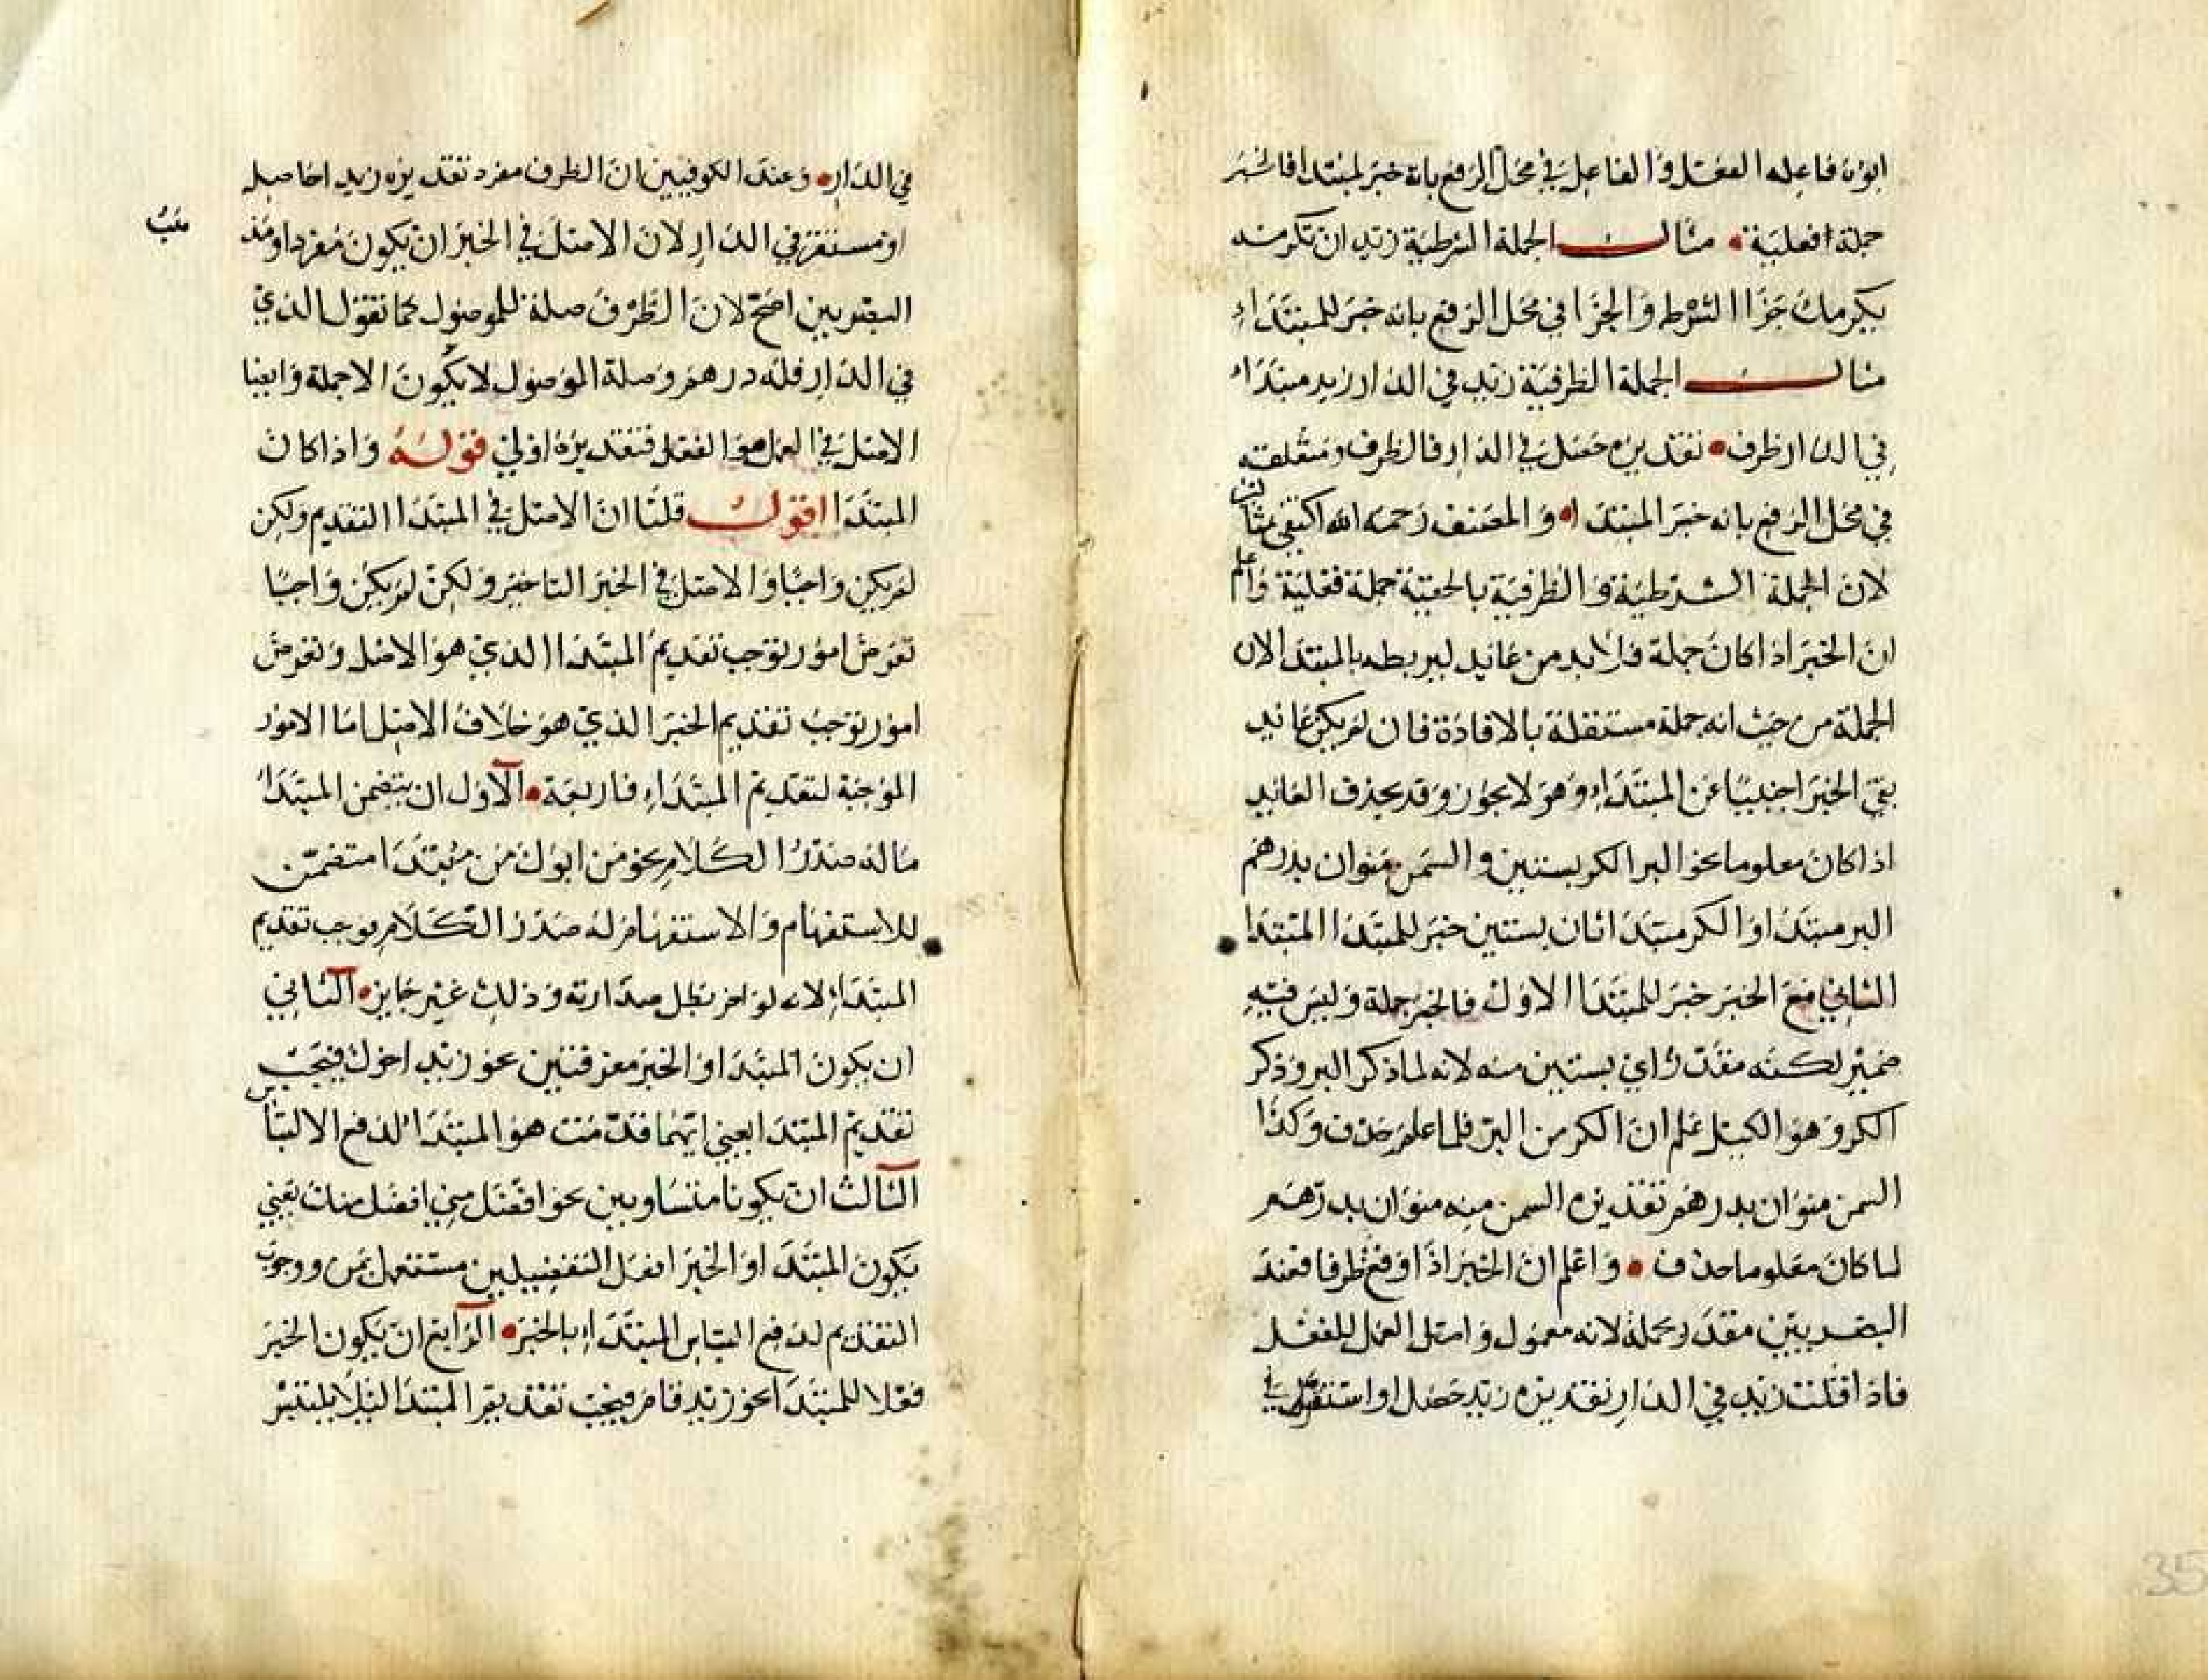 ابوه فاعله الفعل والفاعل في محل الرفع بانه خبر لمبتدا فالخبر
جملة فعلية مثال الجملة الشرطية زيد ان تكرمه
يكرمك جزا الشرط والجزا في محل الرفع بانه خبر للمبتداء
مثال الجملة الظرفية زيد في الدار زيد مبتداء
في الدار ظرف تقديره حصل في الدار فالظرف ومتعلقه
في محل الرفع بانه خبر المبتدا والمصنف رحمه الله اكتفى بمثالين
لان الجملة الشرطية والظرفية بالحقيقة جملة فعلية واعلم
ان الخبر اذا كان جملة فلا بد من عائد ليربطه بالمبتدا لان
الجملة من حيث انه جملة مستقلة بالافادة فان لم يكن عائد
بقي الخبر اجنبيا عن المبتداء وهو لا يجوز وقد يحذف العائد
اذا كان معلوما نحو البر الكر بستين والسمن منوان بدرهم
البر مبتدا والكر مبتدا ثان بستين خبر للمبتدا المبتدا
الثاني مع الخبر خبر للمبتدا الاول فالخبر جملة وليس فيه
ضمير لكنه مقدر اي بستين منه لانه لما ذكر البر وذكر
الكر وهو الكيل علم ان الكر من البر فلما علم حذف وكذا
السمن منوان بدرهم تقديره السمن منه منوان بدرهم
لما كان معلوما حذف واعلم ان الخبر اذا وقع ظرفا فعند
البصريين مقدر بجملة لانه معمول واصل العمل للفعل
فاذا قلت زيد في الدار تقديره زيد حصل او استقر في
في الدار وعند الكوفيين ان الظرف مفرد تقديره زيد حاصل
او مستقر في الدار لان الاصل في الخبر ان يكون مفردا ومذهب
البصريين اصح لان الظرف صلة للموصول كما تقول الذي
في الدار فله درهم وصلة الموصول لا يكون الا جملة وايضا
الاصل في العمل هو الفعل فتقديره اولى قوله واذا كان
المبتدا اقول قلنا ان الاصل في المبتدا التقديم ولكن
لم يكن واجبا والاصل في الخبر التاخير ولكن لم يكن واجبا
تعرض امور توجب تقديم المبتدا الذي هو الاصل وتعرض
امور توجب تقديم الخبر الذي هو خلاف الاصل اما الامور
الموجبة لتقديم المبتداء فاربعة الاول ان يتضمن المبتدا
ما له صدر الكلام نحو من ابوك من مبتدا متضمن
للاستفهام والاستفهام له صدر الكلام فوجب تقديم
المبتداء لانه لو اخر بطل صدارته وذلك غير جايز الثاني
ان يكون المبتدا والخبر معرفتين نحو زيد اخوك فيجب
تقديم المبتدا يعني ايهما قدمت هو المبتدا لدفع الالتباس
الثالث ان يكونا متساويين نحو افضل مني افضل منك يعني
يكون المبتدا والخبر افعل التفضيلين مستعمل بمن ووجوب
التقديم لدفع التباس المبتداء بالخبر الرابع ان يكون الخبر
فعلا للمبتدا نحو زيد قام فيجب تقديم المبتدا لئلا يلتبس
35